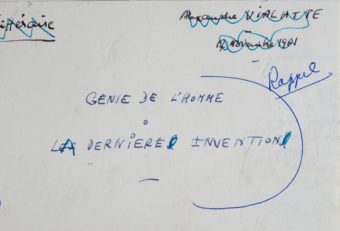 Littéraire
Alexandre VIRLAITE
12 Novembre 1961
Rappel
GENIE DE L'HOMME
LA DERNIERE INVENTION